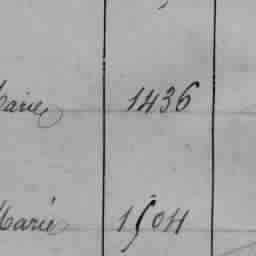 Marie 1436
Marie 1504